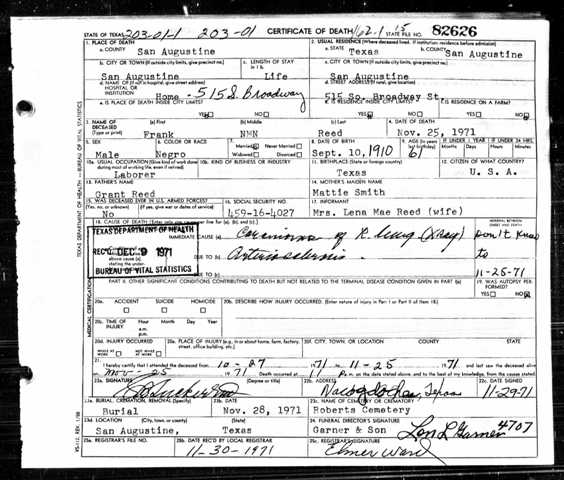 STATE OF TEXAS 203-01-1 203-01 CERTIFICATE OF DEATH 162-1 15 STATE FILE NO. 82626
1. PLACE OF DEATH
a. COUNTY San Augustine
2. USUAL RESIDENCE (Where deceased lived. If institution: residence before admission)
a. STATE Texas b. COUNTY San Augustine
b. CITY OR TOWN (If outside city limits, give precinct no.) San Augustine
c. LENGTH OF STAY in 1 b. Life
c. CITY OR TOWN (If outside city limits, give precinct no.) San Augustine
d. NAME OF (If not in hospital, give street address) HOSPITAL OR INSTITUTION Home - 515 S. Broadway
d. STREET ADDRESS (If rural, give location) 515 So. Broadway St.
e. IS PLACE OF DEATH INSIDE CITY LIMITS? YES NO
e. IS RESIDENCE INSIDE CITY LIMITS? YES NO
f. IS RESIDENCE ON A FARM? YES NO
3. NAME OF DECEASED (Type or print)
(a) First Frank (b) Middle NMN (c) Last Reed
4. DATE OF DEATH Nov. 25, 1971
5. SEX Male
6. COLOR OR RACE Negro
7. Married Never Married Widowed Divorced
8. DATE OF BIRTH Sept. 10, 1910
9. AGE (In years last birthday) 61
IF UNDER 1 YEAR Months Days
IF UNDER 24 HRS. Hours Min.
10a. USUAL OCCUPATION (Give kind of work done during most of working life, even if retired) Laborer
10b. KIND OF BUSINESS OR INDUSTRY
11. BIRTHPLACE (State or foreign country) Texas
12. CITIZEN OF WHAT COUNTRY? U. S. A.
13. FATHER'S NAME Grant Reed
14. MOTHER'S MAIDEN NAME Mattie Smith
15. WAS DECEASED EVER IN U.S. ARMED FORCES? (Yes, no, or unknown) (If yes, give war or dates of service) No
16. SOCIAL SECURITY NO. 459-16-4027
17. INFORMANT Mrs. Lena Mae Reed (wife)
18. CAUSE OF DEATH
INTERVAL BETWEEN ONSET AND DEATH
TEXAS DEPARTMENT OF HEALTH
REC'D DEC 9 1971
BUREAU OF VITAL STATISTICS
IMMEDIATE CAUSE (a) Carcinoma of R lung (Xray) don't know
above cause (a) stating the under- DUE TO (b) Arteriosclerosis to
DUE TO (c) 11-25-71
PART II. OTHER SIGNIFICANT CONDITIONS CONTRIBUTING TO DEATH BUT NOT RELATED TO THE TERMINAL DISEASE CONDITION GIVEN IN PART I (a)
19. WAS AUTOPSY PERFORMED? YES NO
20a. ACCIDENT SUICIDE HOMICIDE
20b. DESCRIBE HOW INJURY OCCURRED. (Enter nature of injury in Part I or Part II of item 18.)
20c. TIME OF INJURY Hour Month Day Year a.m. p.m.
20d. INJURY OCCURRED WHILE AT WORK NOT WHILE AT WORK
20e. PLACE OF INJURY (e.g., in or about home, farm, factory, street, office building, etc.)
20f. CITY, TOWN, OR LOCATION COUNTY STATE
21. I hereby certify that I attended the deceased from 10-27 1971 to 11-25 1971 and last saw the deceased alive
on Nov-25 1971 Death occurred at 11 P m. on the date stated above, and to the best of my knowledge, from the causes stated.
22a. SIGNATURE
22b. ADDRESS Nacogdoches, Texas
22c. DATE SIGNED 11-29-71
23a. BURIAL, CREMATION, REMOVAL (Specify) Burial
23b. DATE Nov. 28, 1971
23c. NAME OF CEMETERY OR CREMATORY Roberts Cemetery
23d. LOCATION (City, town, or county) (State) San Augustine, Texas
24. FUNERAL DIRECTOR'S SIGNATURE Garner & Son Lon L Garner 4707
25a. REGISTRAR'S FILE NO.
25b. DATE REC'D BY LOCAL REGISTRAR 11-30-1971
25c. REGISTRAR'S SIGNATURE Elmer Ward
TEXAS DEPARTMENT OF HEALTH - BUREAU OF VITAL STATISTICS
MEDICAL CERTIFICATION